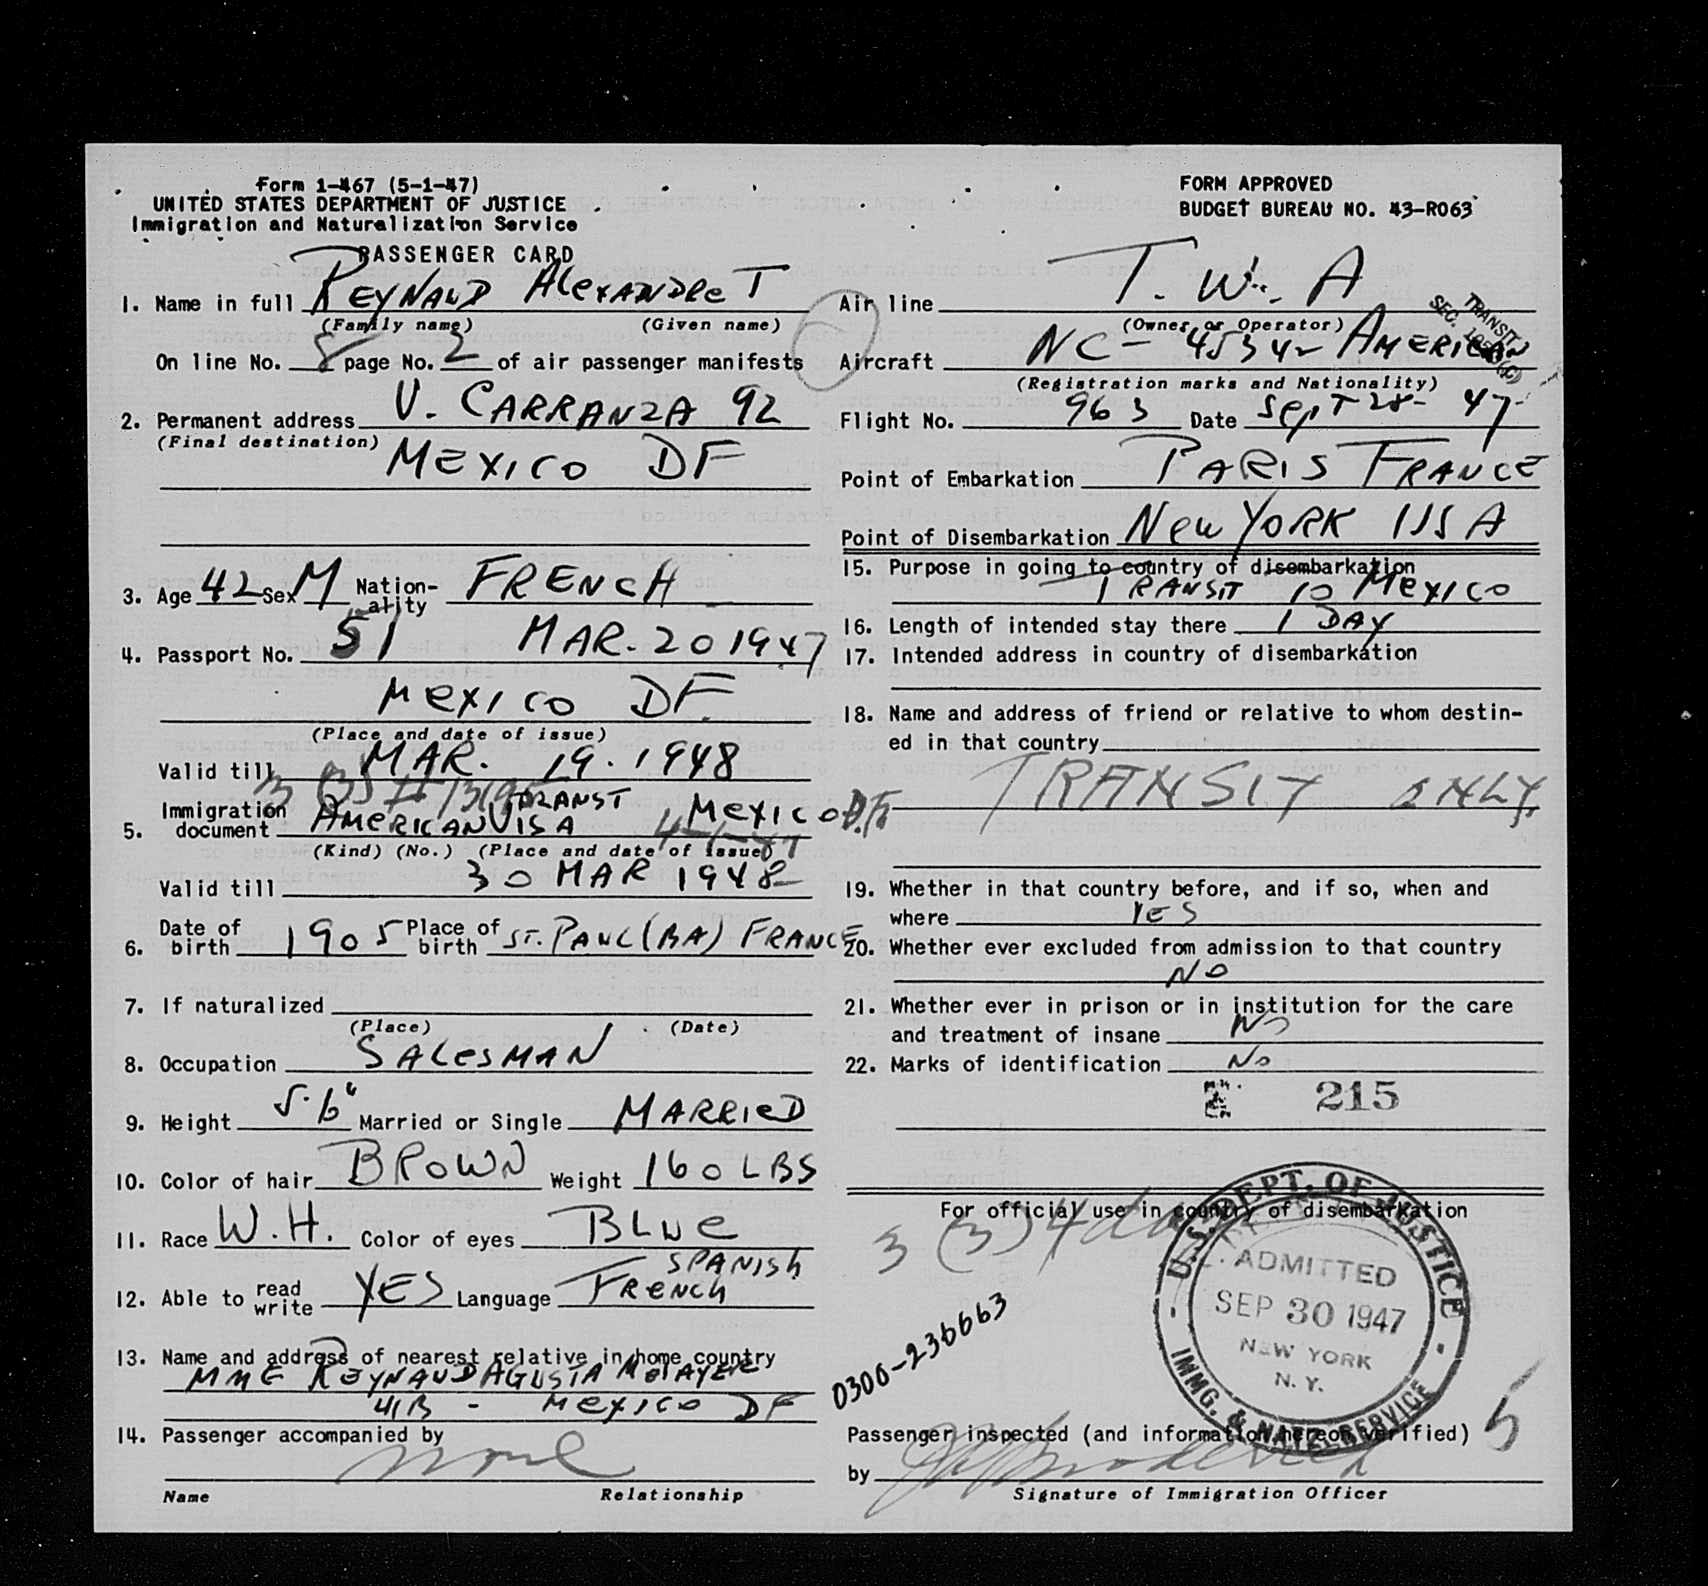 Form 1-467 (5-1-47)
UNITED STATES DEPARTMENT OF JUSTICE
Immigration and Naturalization Service
PASSENGER CARD
1. Name in full REYNAUD ALEXANDRE T
(Family name) (Given name)
On line No. 8 page No. 2 of air passenger manifests
2. Permanent address V. CARRANZA 92
(Final destination) MEXICO DF
3. Age 42 Sex M Nation-ality FRENCH
4. Passport No. 51 MAR. 20 1947
MEXICO DF
(Place and date of issue)
Valid till MAR. 19. 1948
TRANSIT
5. Immigration document AMERICAN VISA MEXICO D.F.
(Kind) (No.) (Place and date of issue)
Valid till 30 MAR 1948
6. Date of birth 1905 Place of birth ST. PAUL (BA) FRANCE
7. If naturalized
(Place) (Date)
8. Occupation SALESMAN
9. Height 5.6" Married or Single MARRIED
10. Color of hair BROWN Weight 160 LBS
11. Race W.H. Color of eyes BLUE
SPANISH
12. Able to read write YES Language FRENCH
13. Name and address of nearest relative in home country
MME REYNAUD AGUSTA
MEXICO DF
14. Passenger accompanied by
none
Name Relationship
FORM APPROVED
BUDGET BUREAU NO. 43-R063
Air line T. W. A
(Owner or Operator)
TRANSIT
SEC.
Aircraft NC-45342 AMERICAN
(Registration marks and Nationality)
Flight No. 963 Date Sept 28- 47
Point of Embarkation PARIS FRANCE
Point of Disembarkation NEW YORK USA
15. Purpose in going to country of disembarkation
TRANSIT TO MEXICO
16. Length of intended stay there 1 DAY
17. Intended address in country of disembarkation
18. Name and address of friend or relative to whom destin-
ed in that country
TRANSIT ONLY
19. Whether in that country before, and if so, when and
where YES
20. Whether ever excluded from admission to that country
NO
21. Whether ever in prison or in institution for the care
and treatment of insane No
22. Marks of identification No
215
For official use in country of disembarkation
3 (3) 4 days
U.S. DEPT. OF JUSTICE
ADMITTED
SEP 30 1947
NEW YORK
N. Y.
IMMG. & NATZ. SERVICE
0300-236663
5
Passenger inspected (and information hereon verified)
by
Signature of Immigration Officer